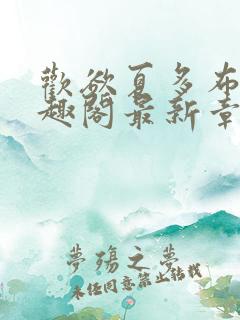 歡欲夏多布
趣閣最新章
夢殤之夢
未经同意禁止转载